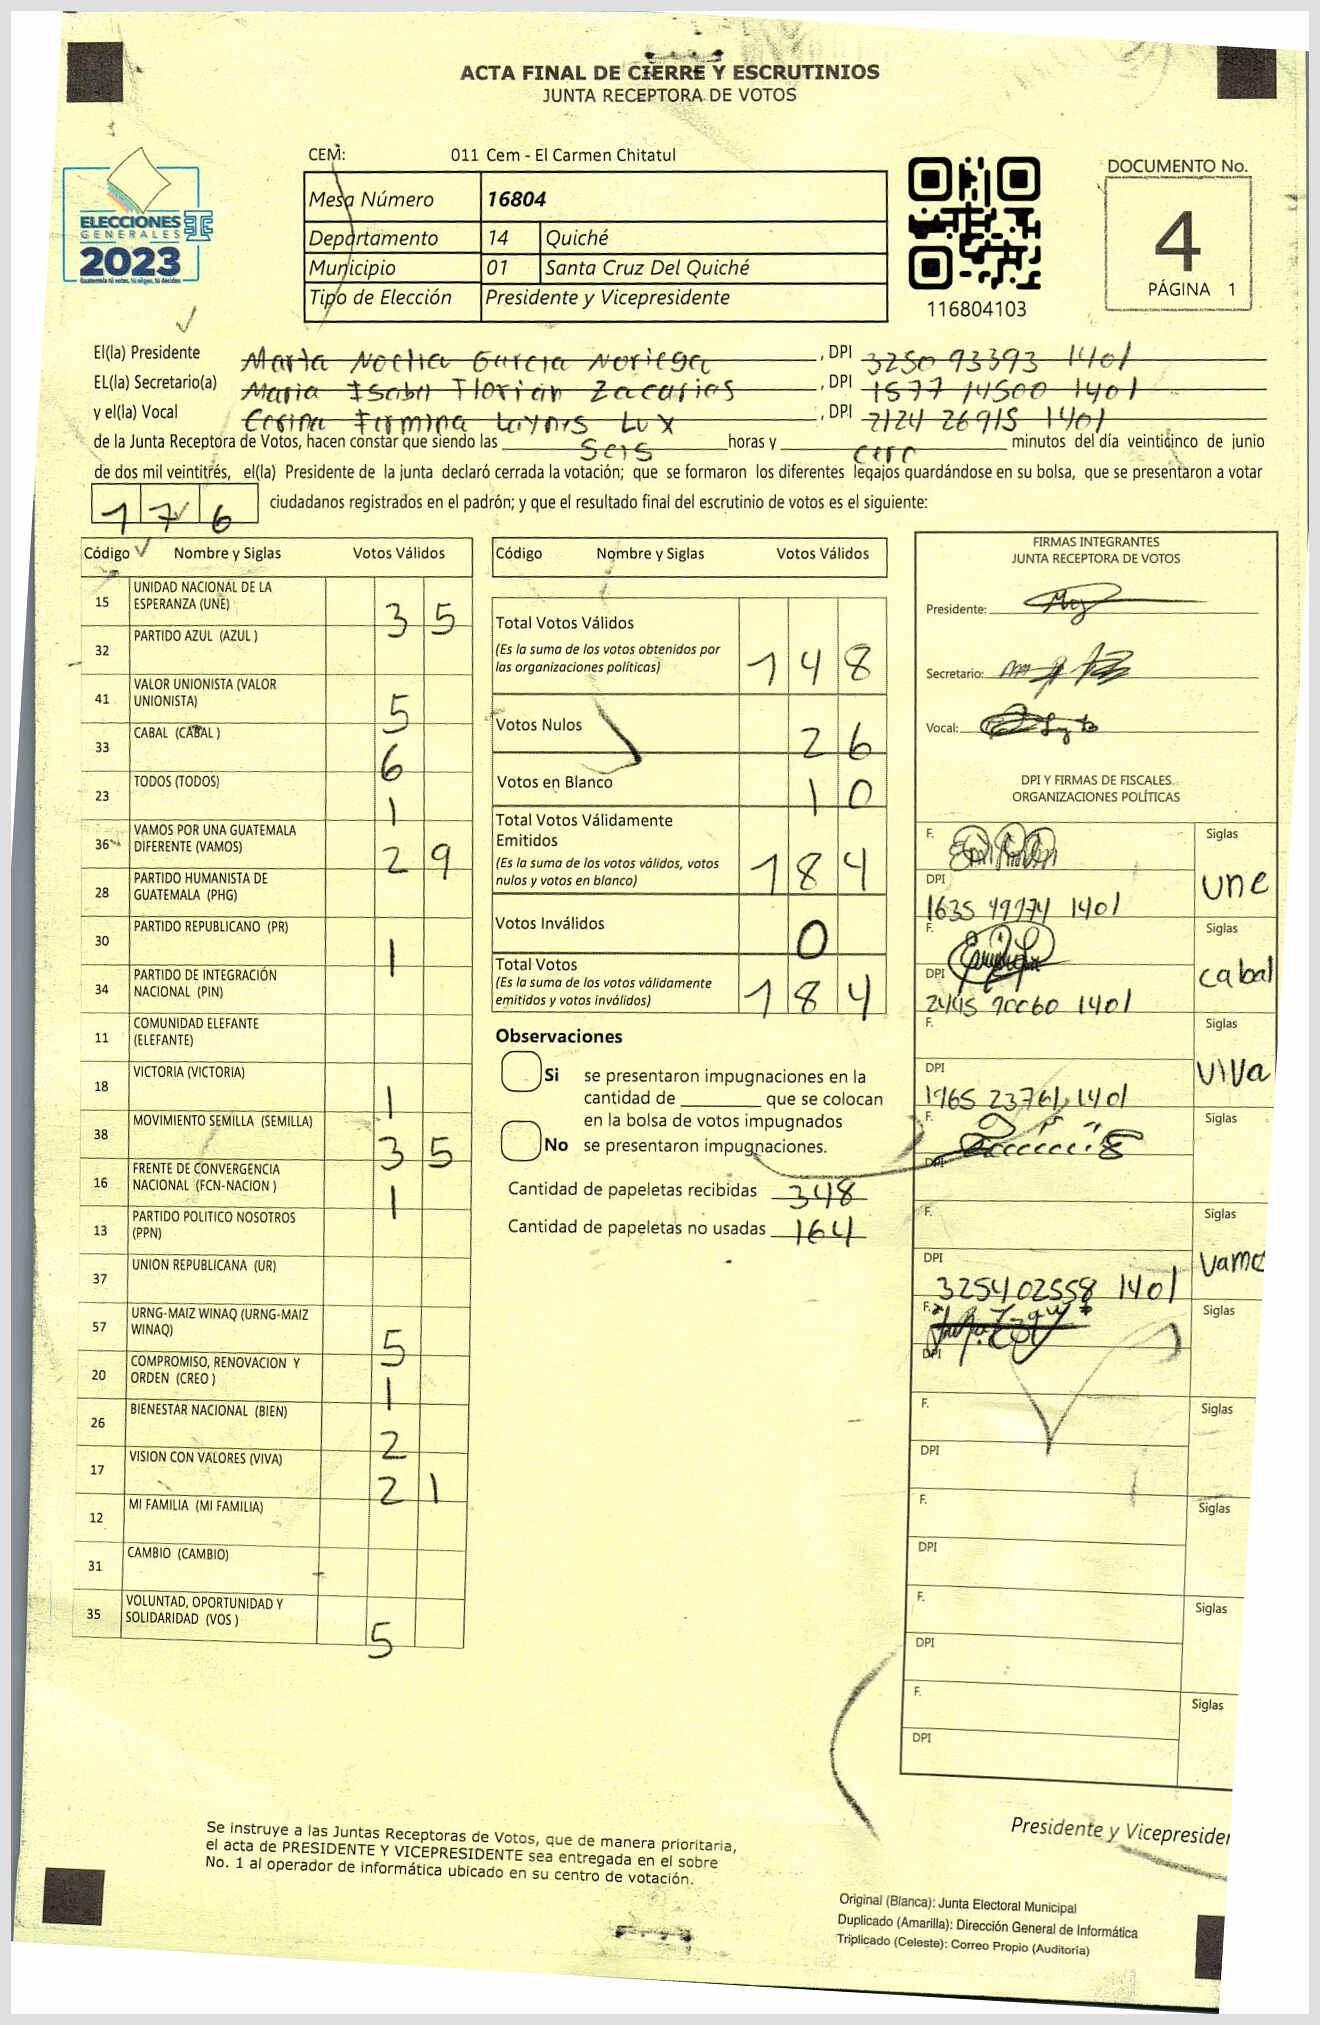 ACTA FINAL DE CIERRE Y ESCRUTINIOS
JUNTA RECEPTORA DE VOTOS
CEM: 011 Cem - El Carmen Chitatul
Mesa Número 16804
Departamento 14 Quiché
Municipio 01 Santa Cruz Del Quiché
Tipo de Elección Presidente y Vicepresidente
116804103
DOCUMENTO No.
4
PÁGINA 1
ELECCIONES
GENERALES
2023
Guatemala tú votas, tú eliges, tú decides
El(la) Presidente Marta Noelia García Noriega , DPI 3250 93393 1401
EL(la) Secretario(a) Maria Isabel Florian Zacarias , DPI 1577 14500 1401
y el(la) Vocal Fermina Laynes Lux , DPI 2124 26915 1401
de la Junta Receptora de Votos, hacen constar que siendo las Seis horas y cero minutos del día veinticinco de junio
de dos mil veintitrés, el(la) Presidente de la junta declaró cerrada la votación; que se formaron los diferentes legajos guardándose en su bolsa, que se presentaron a votar
176 ciudadanos registrados en el padrón; y que el resultado final del escrutinio de votos es el siguiente:
Código Nombre y Siglas Votos Válidos
15 UNIDAD NACIONAL DE LA
ESPERANZA (UNE) 35
32 PARTIDO AZUL (AZUL )
41 VALOR UNIONISTA (VALOR
UNIONISTA) 5
33 CABAL (CABAL ) 6
23 TODOS (TODOS) 1
36 VAMOS POR UNA GUATEMALA
DIFERENTE (VAMOS) 29
28 PARTIDO HUMANISTA DE
GUATEMALA (PHG)
30 PARTIDO REPUBLICANO (PR) 1
34 PARTIDO DE INTEGRACIÓN
NACIONAL (PIN)
11 COMUNIDAD ELEFANTE
(ELEFANTE)
18 VICTORIA (VICTORIA) 1
38 MOVIMIENTO SEMILLA (SEMILLA) 35
16 FRENTE DE CONVERGENCIA
NACIONAL (FCN-NACION ) 1
13 PARTIDO POLITICO NOSOTROS
(PPN)
37 UNION REPUBLICANA (UR)
57 URNG-MAIZ WINAQ (URNG-MAIZ
WINAQ) 5
20 COMPROMISO, RENOVACION Y
ORDEN (CREO ) 1
26 BIENESTAR NACIONAL (BIEN) 2
17 VISION CON VALORES (VIVA) 21
12 MI FAMILIA (MI FAMILIA)
31 CAMBIO (CAMBIO)
35 VOLUNTAD, OPORTUNIDAD Y
SOLIDARIDAD (VOS ) 5
Código Nombre y Siglas Votos Válidos
Total Votos Válidos
(Es la suma de los votos obtenidos por
las organizaciones políticas) 148
Votos Nulos 26
Votos en Blanco 10
Total Votos Válidamente
Emitidos
(Es la suma de los votos válidos, votos
nulos y votos en blanco) 184
Votos Inválidos 0
Total Votos
(Es la suma de los votos válidamente
emitidos y votos inválidos) 184
Observaciones
Si se presentaron impugnaciones en la
cantidad de ________ que se colocan
en la bolsa de votos impugnados
No se presentaron impugnaciones.
Cantidad de papeletas recibidas 348
Cantidad de papeletas no usadas 164
FIRMAS INTEGRANTES
JUNTA RECEPTORA DE VOTOS
Presidente:
Secretario:
Vocal:
DPI Y FIRMAS DE FISCALES
ORGANIZACIONES POLÍTICAS
F. Siglas
une
DPI
1635 1401
F. Siglas
cabal
DPI
2445 90060 1401
F. Siglas
VIVA
DPI
1965 23761 1401
F. Siglas
DPI
F. Siglas
vamo
DPI
3254 02558 1401
F. Siglas
DPI
F. Siglas
DPI
F. Siglas
DPI
F. Siglas
DPI
F. Siglas
DPI
Presidente y Vicepresiden
Se instruye a las Juntas Receptoras de Votos, que de manera prioritaria,
el acta de PRESIDENTE Y VICEPRESIDENTE sea entregada en el sobre
No. 1 al operador de informática ubicado en su centro de votación.
Original (Blanca): Junta Electoral Municipal
Duplicado (Amarilla): Dirección General de Informática
Triplicado (Celeste): Correo Propio (Auditoría)